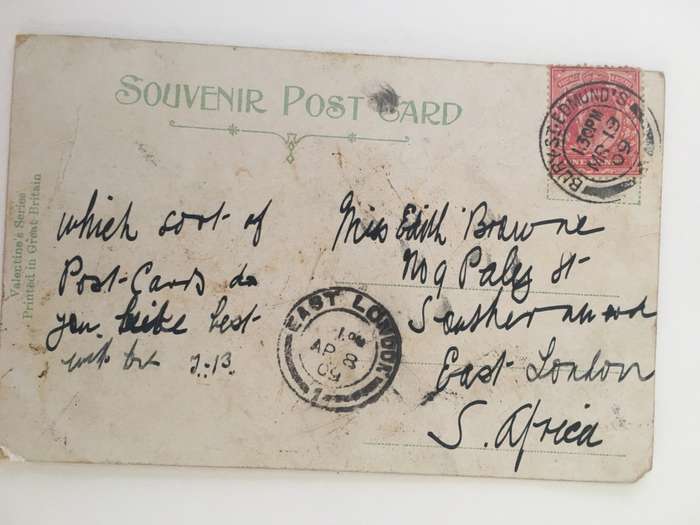 SOUVENIR POST CARD
Valentine's Series
Printed in Great Britain
BURY ST. EDMUND'S
1.30PM
13
09
ONE PENNY
which sort of
Post-Cards do
you like best
J.B.
EAST LONDON
AP 8
09
Miss Edith Browne
No 9 Paley St
Southernwood
East London
S. Africa